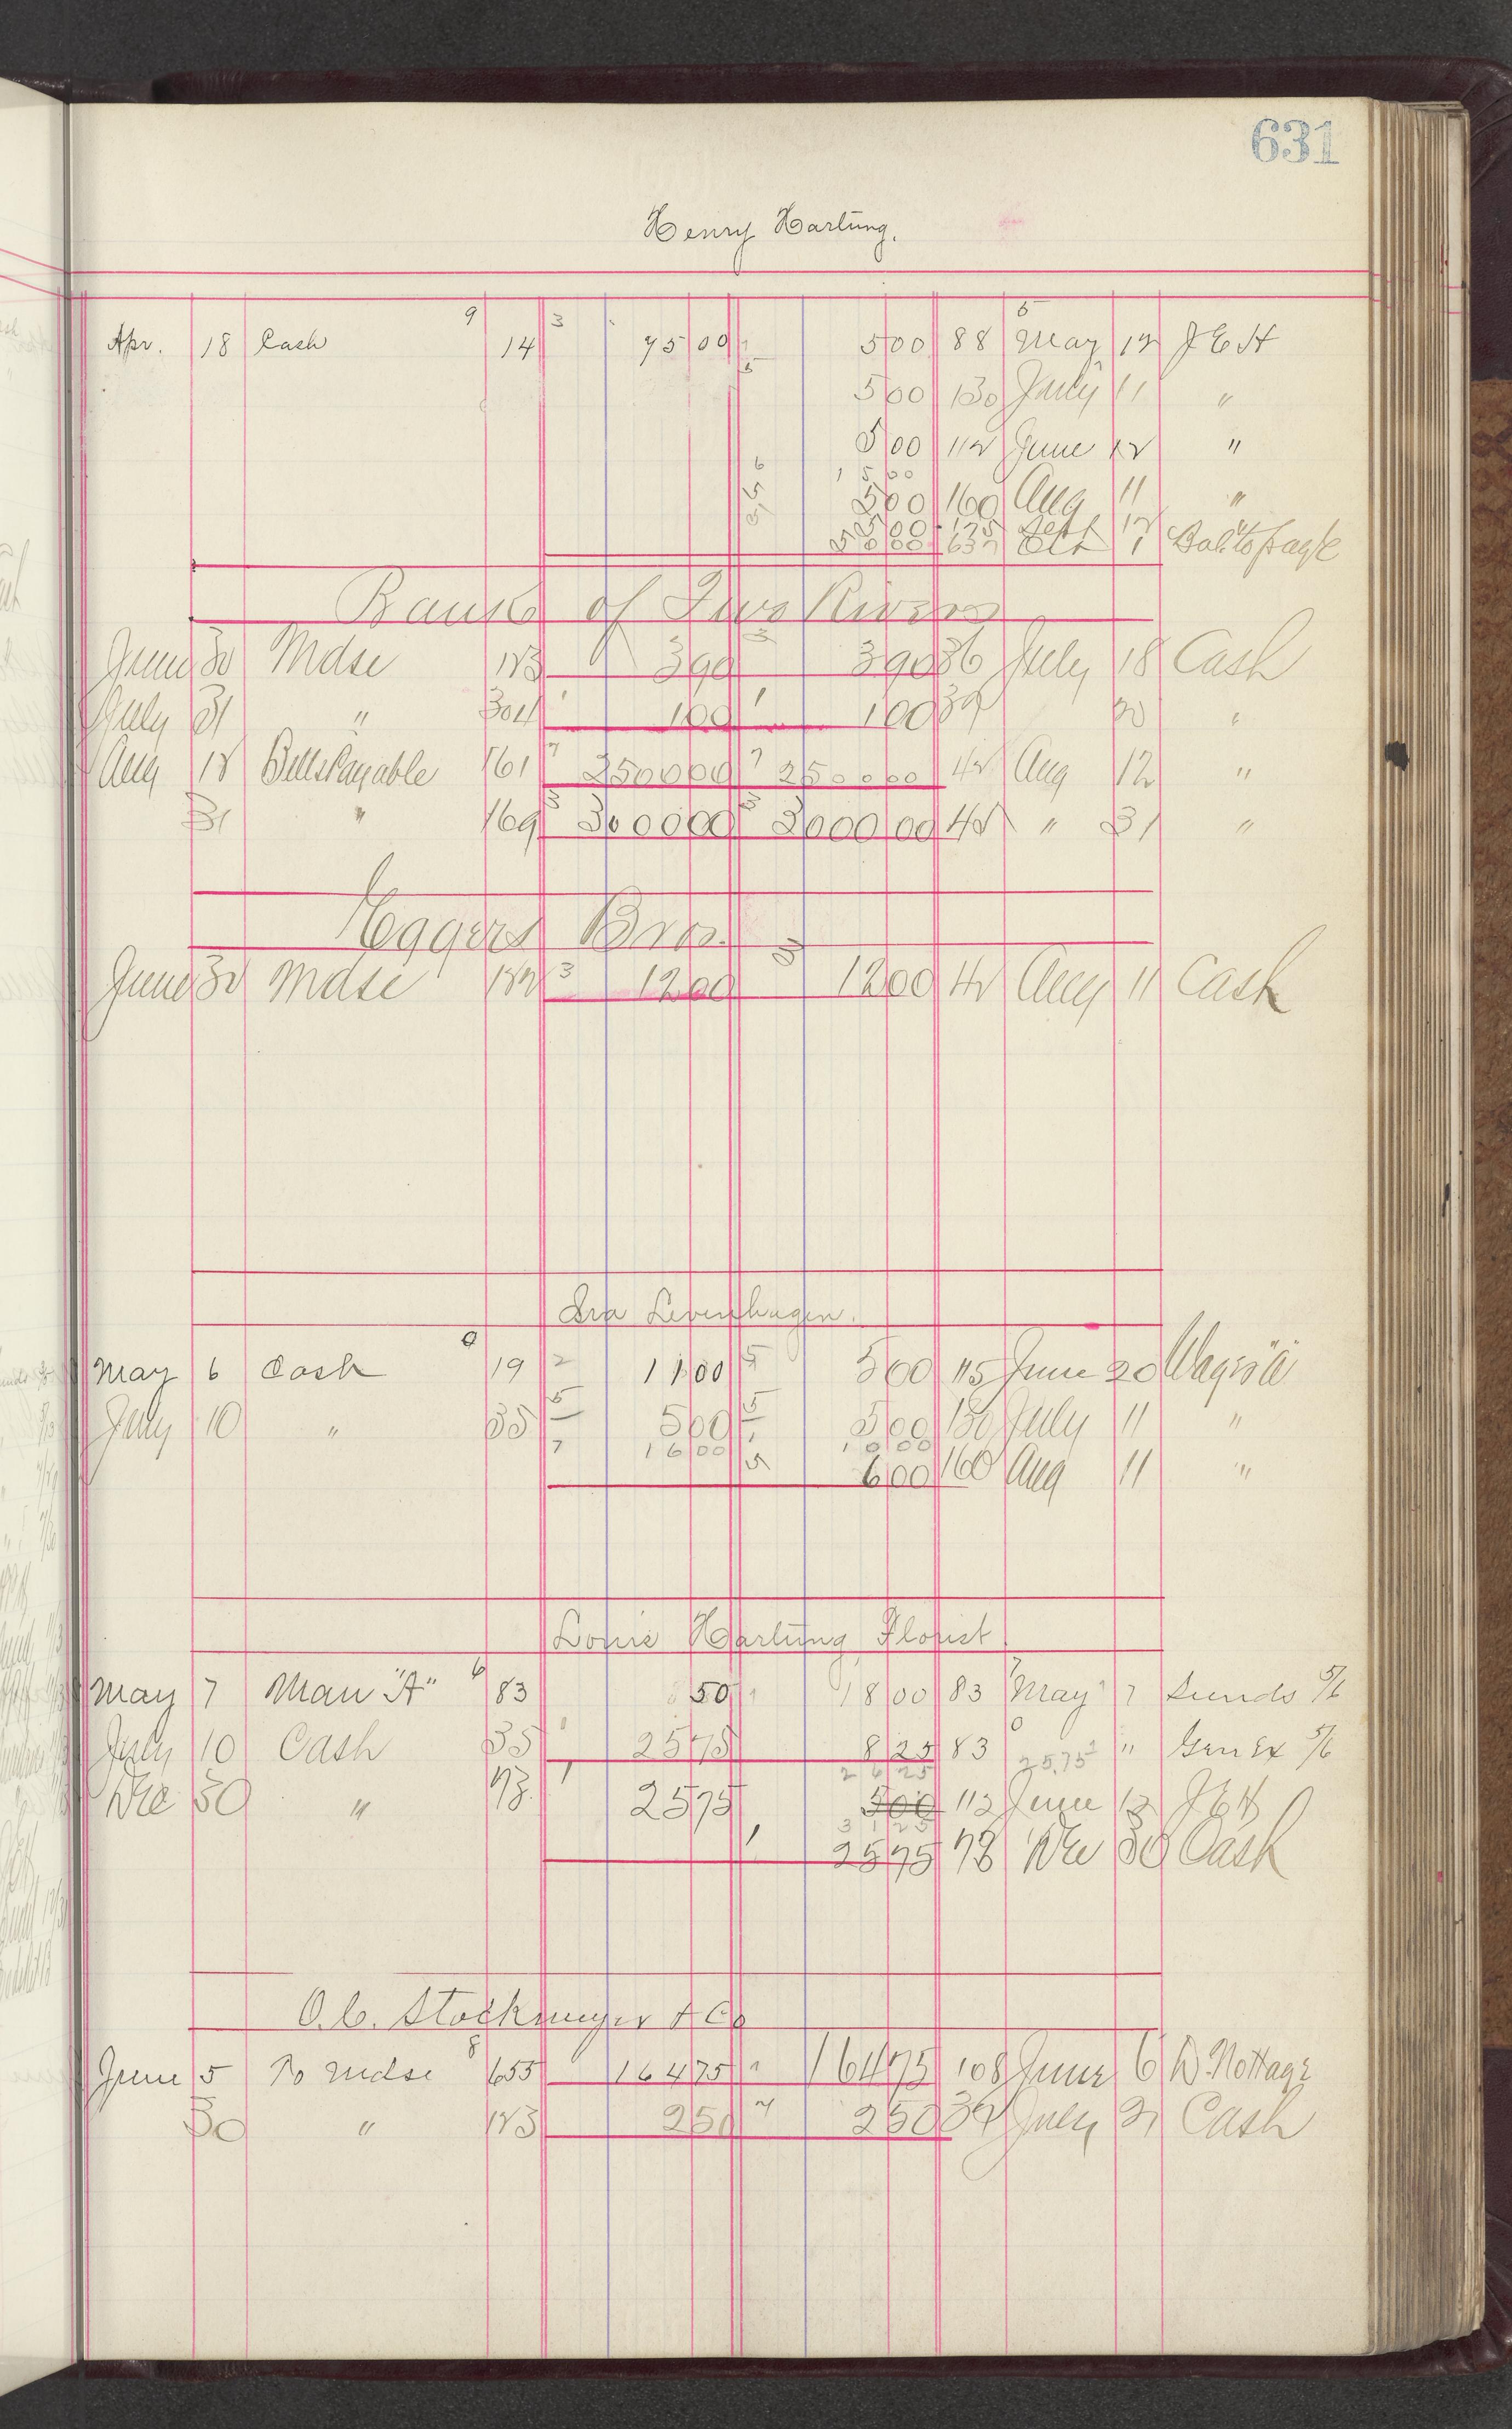 631
Henry Hartung.
9 3 5
Apr. 18 Cash 14 75 00 5 00 88 May 12 J E H
5 00 130 July 11 "
5 00 112 June 12 "
1 5 00
5 00 160 Aug 11 "
5 00 175 Sept 12 "
50 00 637 Oct 1 Bal. to page
Bank of Two Rivers
June 30 Mdse 123 3 90 3 90 36 July 18 Cash
July 31 " 304 1 00 1 00 39 20 "
Aug 12 Bills Payable 161 2500 00 2500 00 42 Aug 12 "
31 " 169 3000 00 3000 00 42 " 31 "
Eggers Bros.
June 30 Mdse 122 3 12 00 12 00 42 Aug 11 Cash
Ira Levenhagen.
May 6 Cash 19 2 11 00 5 5 00 115 June 20 Wages "A"
July 10 " 35 5 5 00 5 5 00 130 July 11 "
7 16 00 10 00
6 00 160 Aug 11 "
Louis Hartung Florist
May 7 Man "A" 6 83 50 18 00 83 May 7 Sunds 5/6
July 10 Cash 35 25 75 8 25 83 " Gen Ex 5/6
26 25 25.75
Dec 30 " 73 25 75 5 00 112 June 12 J E H
31 25
25 75 73 Dec 30 Cash
O. C. Stockmeyer & Co
June 5 To Mdse 8 655 164 75 164 75 108 June 6 D. Nottage
30 " 123 2 50 2 50 39 July 21 Cash